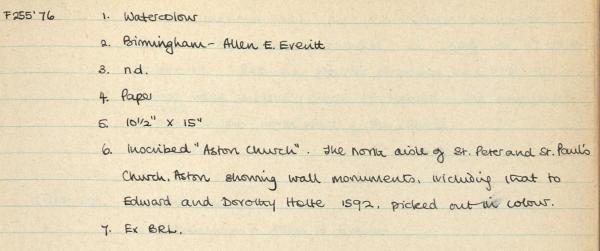 F255'76 1. Watercolour
2. Birmingham - Allen E. Everitt
3. nd.
4. Paper
5. 10½" x 15"
6. Inscribed "Aston Church". The north aisle of St. Peter and St. Paul's
Church, Aston showing wall monuments, including that to
Edward and Dorothy Holte 1592, picked out in colour.
7. Ex BRL.